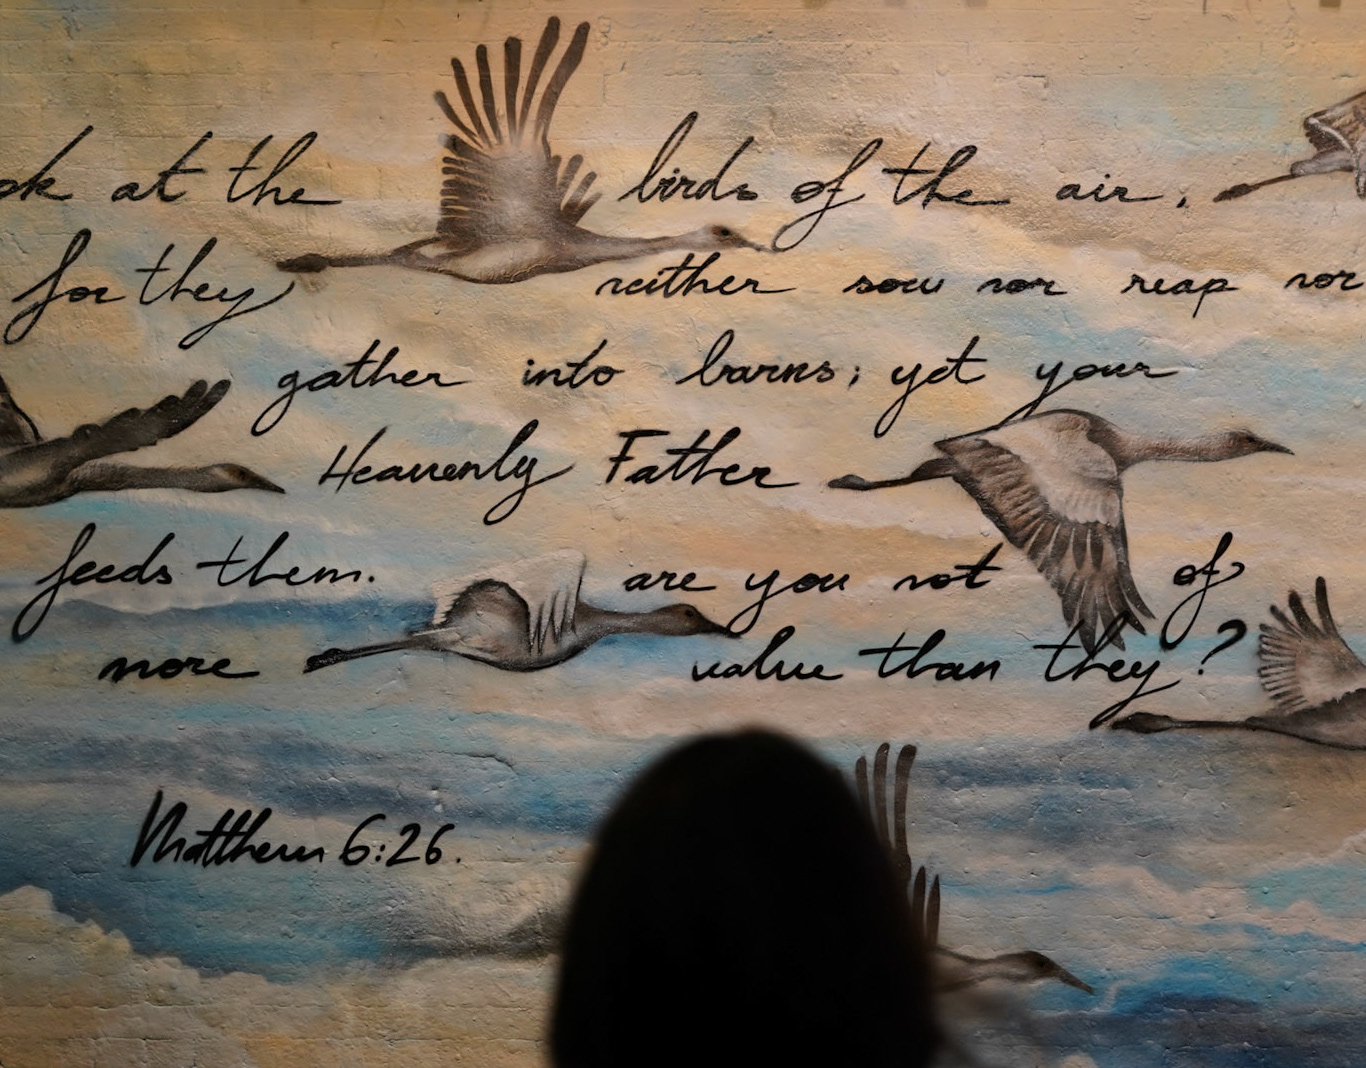 ok at the birds of the air,
for they neither sow nor reap nor
gather into barns; yet your
Heavenly Father
feeds them. are you not of
more value than they?
Matthew 6:26.